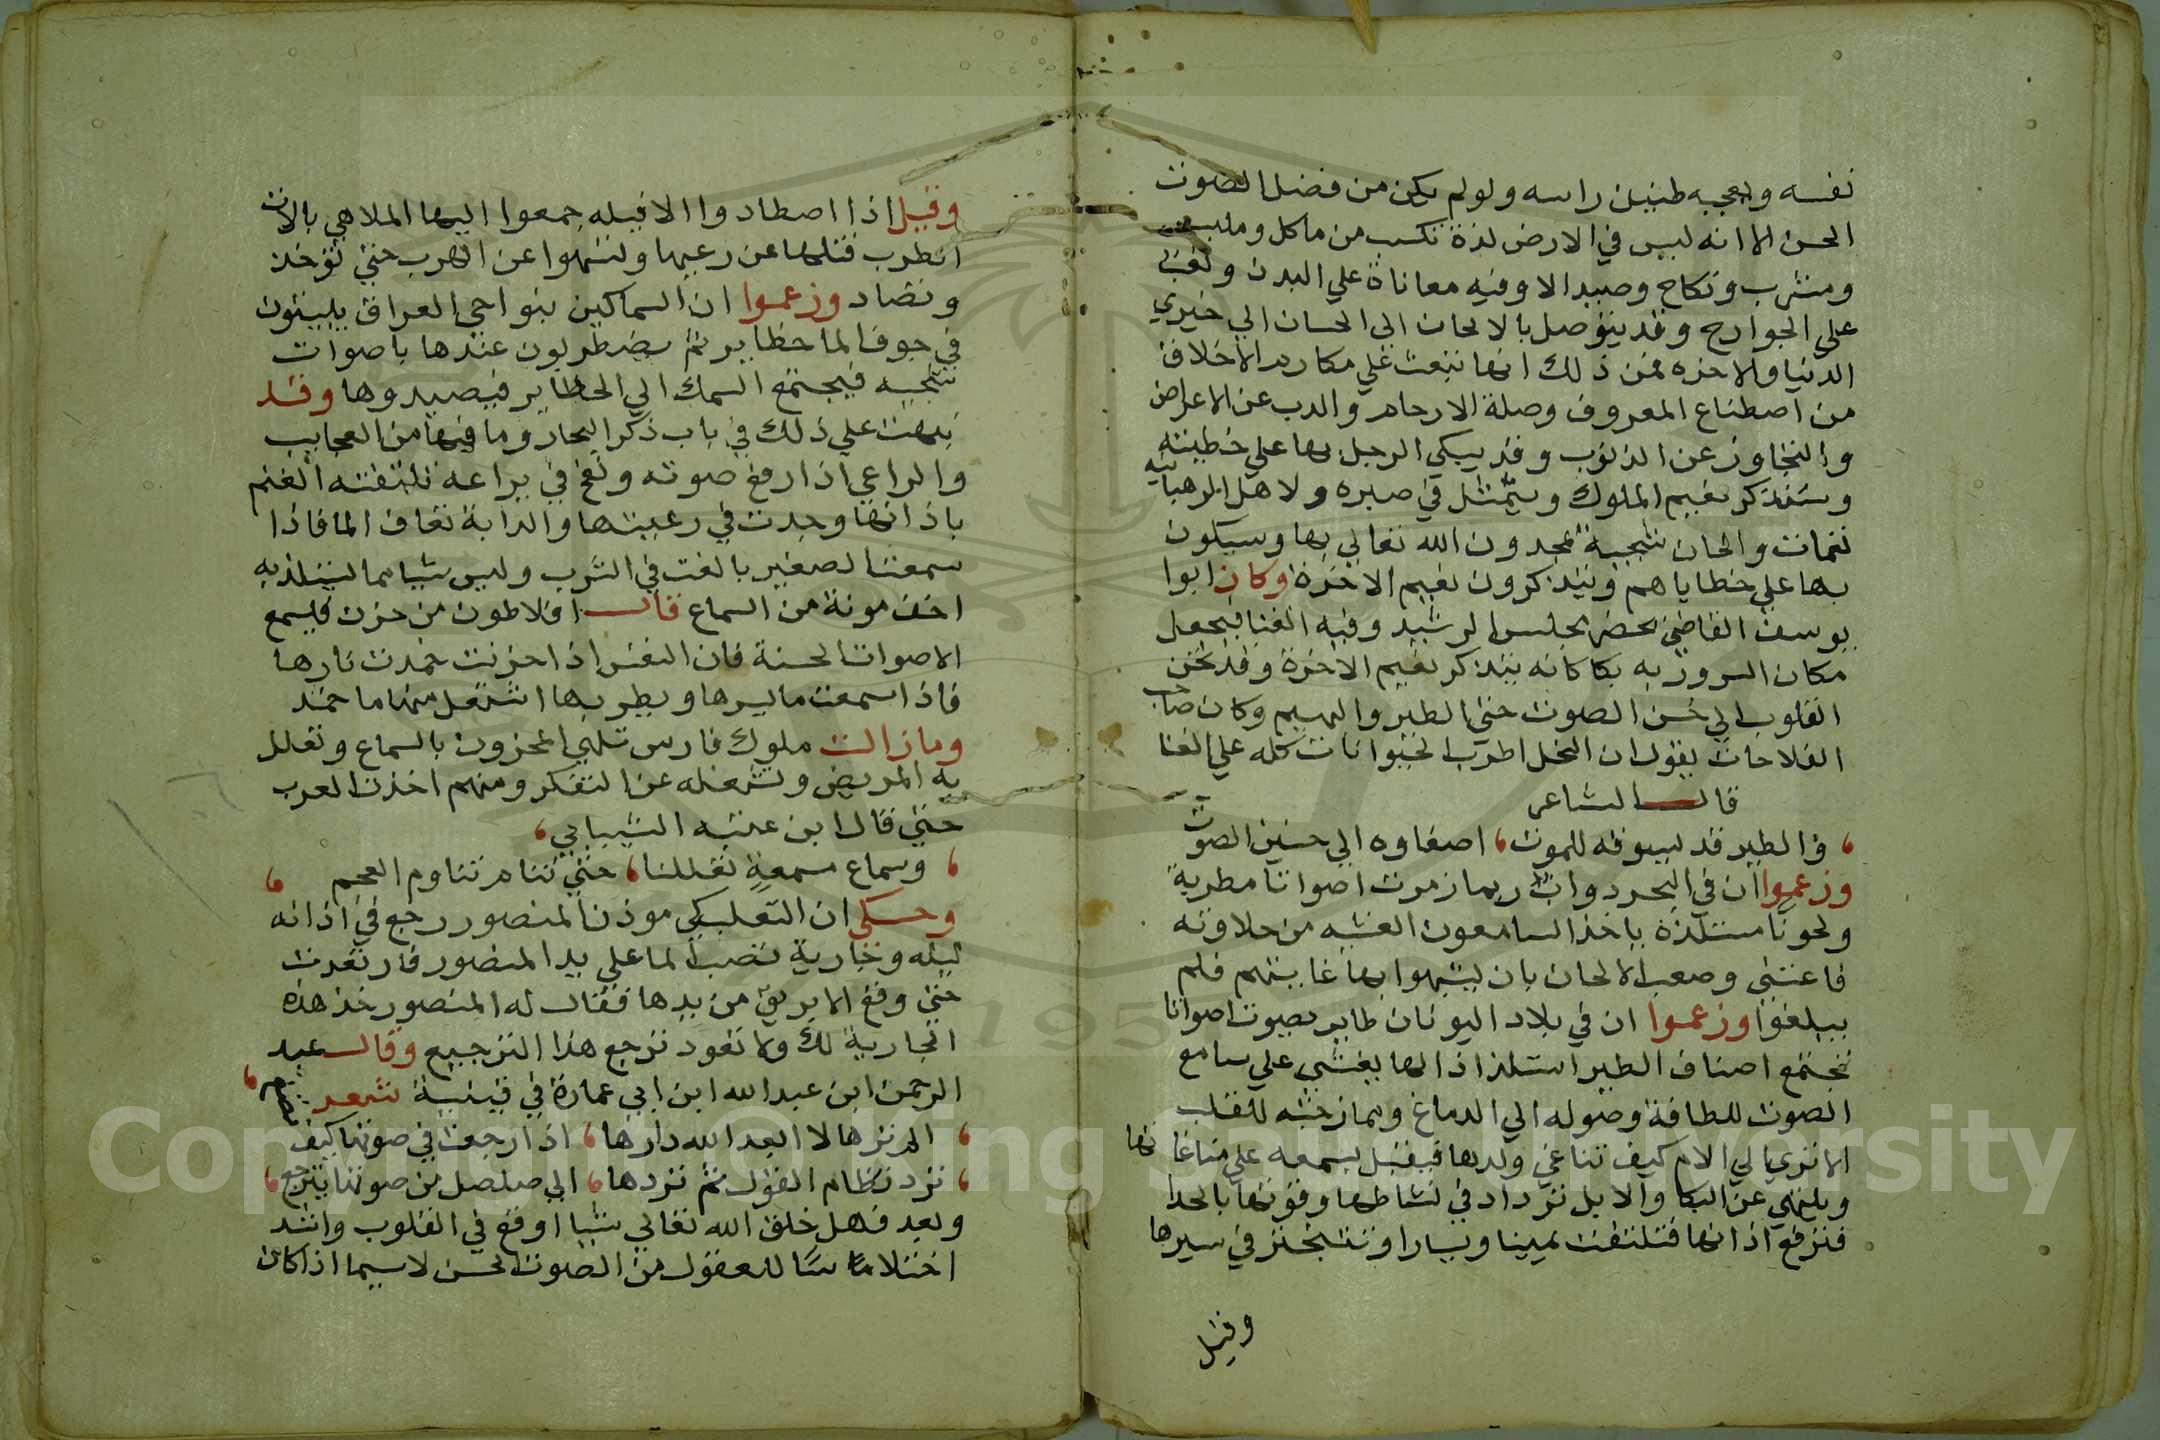 نفسه ويعجبه طنين راسه ولو لم يكن من فضل الصوت
الحسن الا انه ليس في الارض لذة تكسب من ماكل وملبس
ومشرب ونكاح وصيد الا وفيه معاناة علي البدن وتعب
علي الجوارح وقد يتوصل بالالحان الي الحسان الي خيري
الدنيا والاخره فمن ذلك انها تبعث علي مكارم الاخلاق
من اصطناع المعروف وصلة الارحام والدب عن الاعراض
والتجاوز عن الذنوب وقد يبكي الرجل بها علي خطيئته
ويتذكر نعيم الملوك ويتمثل في صبره ولاهل الرهبانيه
نغمات والحان شجية يمجدون الله تعالي بها ويبكون
بها علي خطاياهم ويتذكرون نعيم الاخرة وكان ابوا
يوسف القاضي يحضر مجلس الرشيد وفيه الغنا فيجعل
مكان السرور به بكا كانه يتذكر نعيم الاخرة وقد تحن
القلوب الي حسن الصوت حتي الطير والبهيم وكان صاحب
الفلاحات يقول ان النحل اطرب الحيوانات كله علي الغنا
قال الشاعر
والطير قد يسوقه للموت اصغاوه الي حنين الصوت
وزعموا ان في البحر دواب ربما زمرت اصواتا مطربة
ولحونا مستلذة ياخذ السامعون الغشيه من حلاوته
فاعتني وضعة الالحان بان يشبهوا بها غايتهم فلم
يبلغوا وزعموا ان في بلاد اليونان طاير يصوت اصواتا
تجتمع اصناف الطير استلذاذا لها يغشي علي سامع
الصوت للطافة وصوله الي الدماغ وممازجته للقلب
الا تري الي الام كيف تناغي ولدها فيقبل بسمعه علي مناغاتها
ويلتهي عن البكا والابل تزداد في نشاطها وقوتها بالحدا
فترفع اذانها فتلتفت يمينا ويسارا وتتبختر في سيرها
وقيل
وقيل اذا اصطادوا الافيله جمعوا اليها الملاهي بالات
الطرب فتلها عن رعيها ولتنهوا عن الهرب حتي تؤخذ
وتصاد وزعموا ان السماكين بنواحي العراق يبيتون
في جوف الما حظاير ثم يضطربون عندها باصوات
شجيه فيجتمع السمك الي الحظاير فيصيدوها وقد
نبهت علي ذلك في باب ذكر البحار وما فيها من العجايب
والراعي اذا رفع صوته ونفخ في يراعه تلقته الغنم
باذانها وجدت في رعيتها والدابة تعاف الما فاذا
سمعت الصفير بالغت في الشرب وليس شيا مما يستلذ به
اخف مونة من السماع قال افلاطون من حزن فليسمع
الاصوات الحسنة فان النفس اذا حزنت خمدت نارها
فاذا سمعت ما يسرها ويطربها اشتعل منها ما خمد
وما زالت ملوك فارس تلهي المحزون بالسماع وتعلل
به المريض وتشغله عن التفكر ومنهم اخذت العرب
حتي قال ابن عنبه الشيباني
وسماع مسمعة تعللنا حتي تنام تناوم العجم
وحكي ان التعلبكي موذن المنصور رجع في اذانه
ليله وجارية تصب الما علي يد المنصور فارتعدت
حتي وقع الابريق من يدها فقال له المنصور خذ هذه
الجارية لك ولا تعود ترجع هذا الترجيع وقال عبد
الرحمن ابن عبد الله ابن ابي عمارة في قينة شعر
الم ترها لا ابعد الله دارها اذا رجعت في صوتها كيف
ترد نظام القول ثم تردها الي صلصل من صوتها يترجع
وبعد فهل خلق الله تعالي شيا اوقع في القلوب واشد
اختلاسا للعقول من الصوت الحسن لاسيما اذا كان